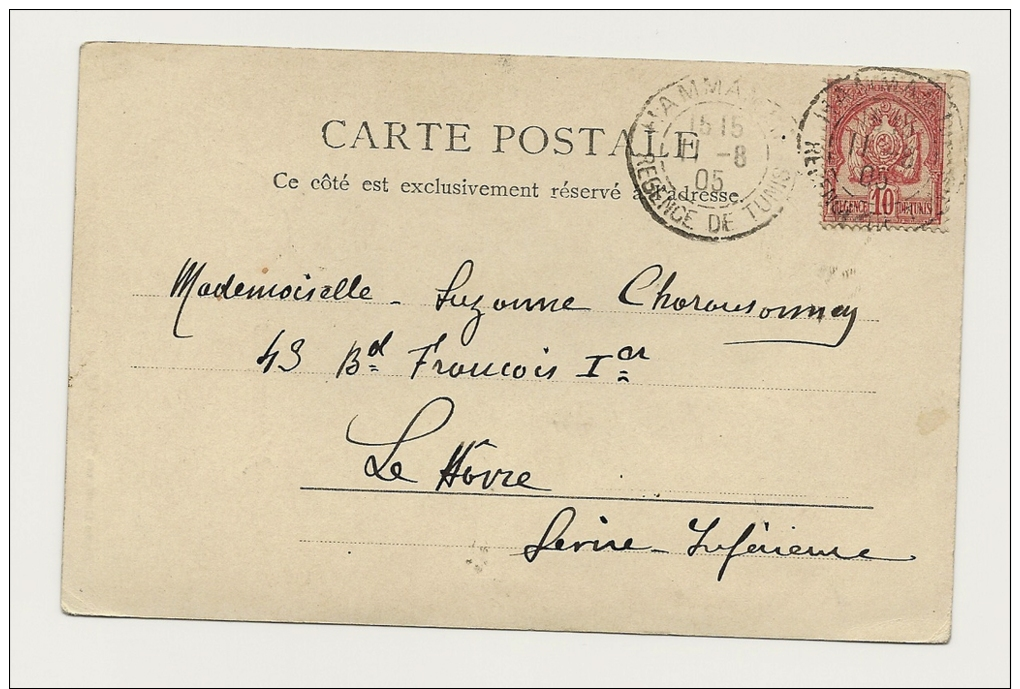 CARTE POSTALE
Ce côté est exclusivement réservé à l'adresse.
15 15
11 -8
05
REGENCE DE TUNIS
11 -8
05
REGENCE 10 DE TUNIS
Mademoiselle - Suzanne
43 Bd François Ier
Le Hâvre
Seine-Inférieure